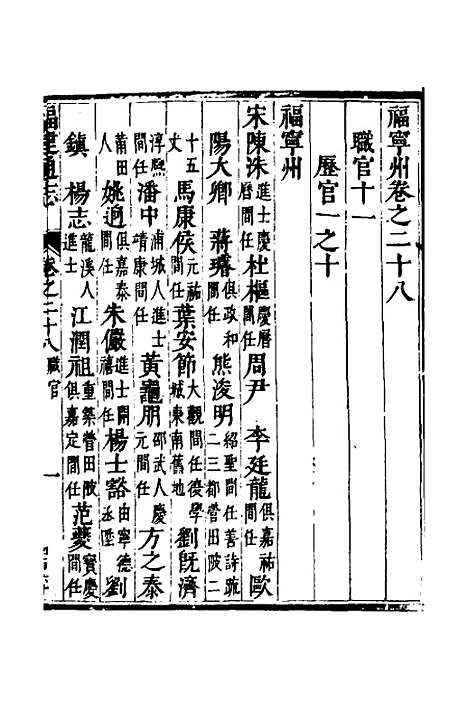 福寧州卷之二十八
職官十一
歷官一之十
福寧州
宋陳洙進士慶曆間任杜樞慶曆間任周尹 李廷龍俱嘉祐間任歐
陽大卿 蔣璿俱政和間任熊浚明紹聖間任善詩疏二三都營田陂二
十五丈馬康侯元祐間任葉安節大觀間任復學城東南舊地劉既濟
淳熙間任潘中浦城人進士靖康間任黃龜朋邵武人慶元間任方之泰
莆田人姚迥俱嘉泰間任朱儼進士開禧間任楊士諮由寧德丞陞劉
鎮 楊志龍溪人進士江潤祖重築營田陂俱嘉定間任范夔寶慶間任
福建通志 卷之二十八職官 一